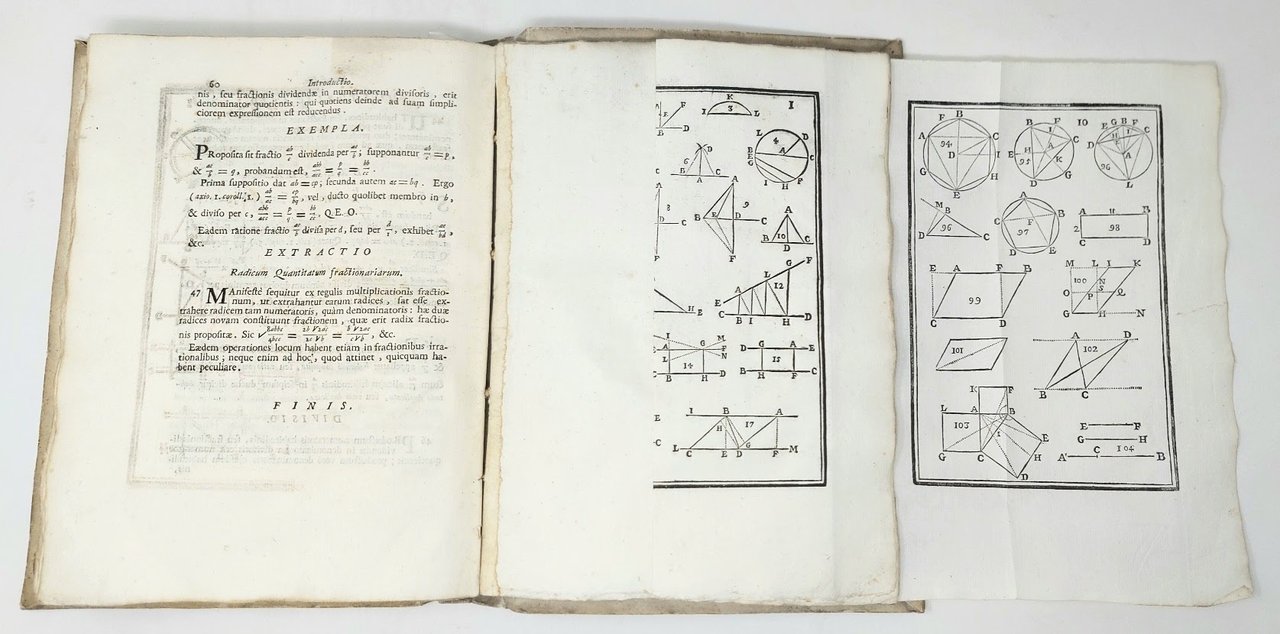 60 Introductio.
nis, seu fractionis dividendæ in numeratorem divisoris, erit
denominator quotientis: qui quotiens deinde ad suam simpli-
ciorem expressionem est reducendus.
EXEMPLA.
PRoposita sit fractio ab/c dividenda per ac/b; supponantur ab/c = p,
& ac/b = q, probandum est, abb/acc = p/q = bb/cc.
Prima suppositio dat ab = cp; secunda autem ac = bq. Ergo
(axio. 1. coroll. 1.) ab/ac = cp/bq, vel, ducto quolibet membro in b,
& diviso per c, abb/acc = p/q = bb/cc. Q.E.O.
Eadem ratione fractio divisa per d, seu per d/1, exhibet
&c.
EXTRACTIO
Radicum Quantitatum fractionariarum.
47 MAnifestè sequitur ex regulis multiplicationis fractio-
num, ut extrahantur earum radices, sat esse ex-
trahere radicem tam numeratoris, quàm denominatoris: hæ duæ
radices novam constituunt fractionem, quæ erit radix fractio-
nis propositæ. Sic &c.
Eædem operationes locum habent etiam in fractionibus irra-
tionalibus; neque enim ad hoc, quod attinet, quicquam ha-
bent peculiare.
FINIS.
K I
I 3 L
F
B D
L D
4
B A C
E
G
I H F
D
6
B A C
A
8
B E D 9
F
A
B 10 C
D
G F
L
A 12
E
C B I H D
H
E
A G M
F
L N
14
B H D
D G A E
15
B H F C
E I B A
H 17
G
C L C E D F M
10
F B
A C
94
D I
G H
E
B F
I C
E H A
95 K
D G
G B F
E I C
D H
A
96
L
M B
96
D C
A
C B
F
97
D E
A 11 B
2 98
C D
E A F B
99
C D
M L I K
100 N
S
O P Q
G H N
101
A D
102
B C
K F
L A B
103 I
E
H
G C
D
E F
G H
A C 104 B